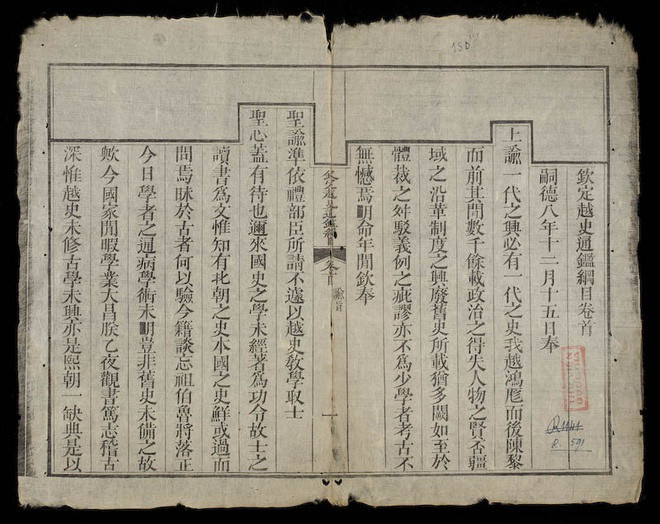 欽定越史通鑑綱目卷首
嗣德八年十二月十五日奉
上諭一代之興必有一代之史我越鴻厖而後陳黎
而前其間數千餘載政治之得失人物之賢否疆
域之沿革制度之興廢舊史所載猶多闕如至於
體裁之舛駁義例之疵謬亦不為少學者考古不
無憾焉明命年間欽奉
聖諭準依禮部臣所請不遽以越史教學取士
聖心蓋有待也邇來國史之學未經著為功令故士之
讀書為文惟知有北朝之史本國之史鮮或過而
問焉昧於古者何以驗今籍談忘祖伯魯將落正
今日學者之通病學術未明豈非舊史未備之故
歟今國家閒暇學業大昌朕乙夜觀書篤志稽古
深惟越史未修古學未興亦是熙朝一缺典是以
卷首
一
150
R. 591